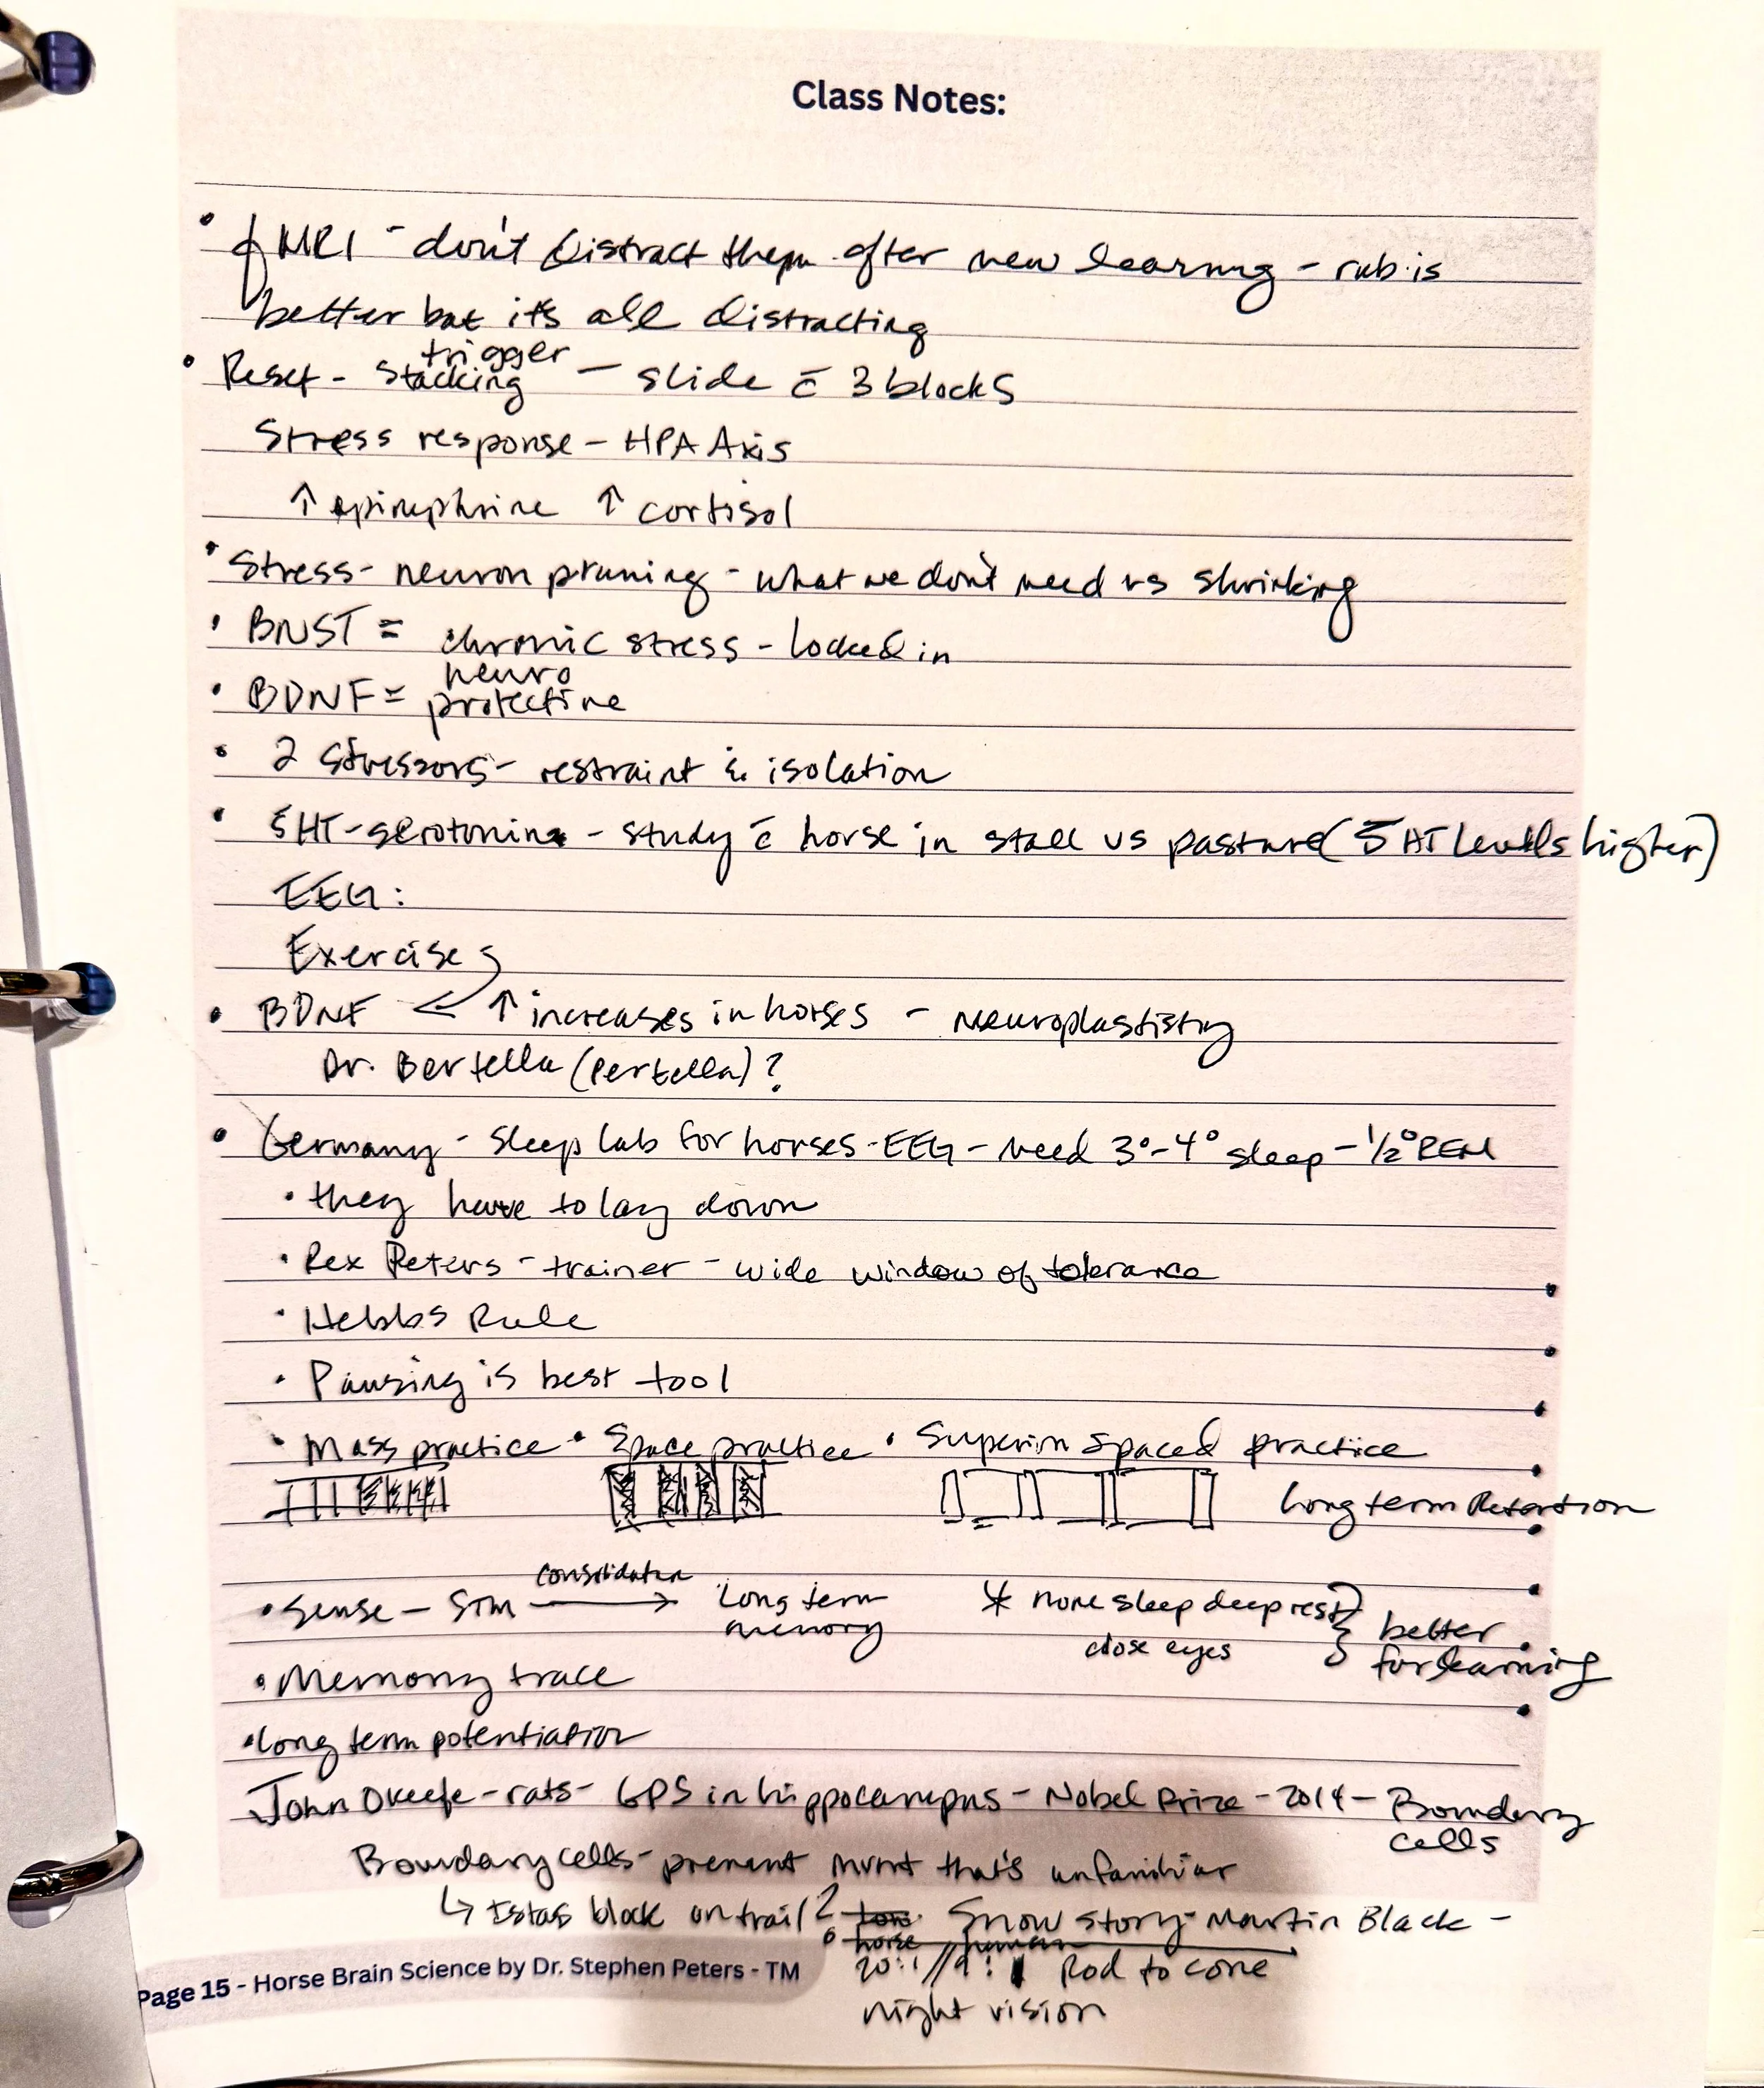 Class Notes:
• fMRI - don't distract them after new learning - rub is
better but it's all distracting
trigger
• Reset - stacking — slide c̄ 3 blocks
Stress response - HPA Axis
↑ epinephrine ↑ cortisol
• Stress - neuron pruning - what we don't need vs shrinking
• BNST = chronic stress - locked in
neuro
• BDNF = protective
• 2 stressors - restraint & isolation
• 5HT - serotonin - study c̄ horse in stall vs pasture (5HT levels higher)
EEG:
Exercise
• BDNF ← ↑ increases in horses - neuroplastistry
Dr. Bertella (Pertella)?
• Germany - sleep lab for horses - EEG - need 3°-4° sleep - 1/2° REM
• they have to lay down
• Rex Peters - trainer - wide window of tolerance
• Hebbs Rule
• Pausing is best tool
• Mass practice • Space practice • Superior spaced practice
Long term Retention
consolidation
• Sense — STM → Long term memory * more sleep deep rest
close eyes } better for learning
• Memory trace
• long term potentiation
John Okeefe - rats - GPS in hippocampus - Nobel Prize - 2014 - Boundary
cells
Boundary cells - prevent mvmt that's unfamiliar
↳ block on trail? Snow story - Martin Black -
horse human
20:1 // 9:1 Rod to cone
night vision
Page 15 - Horse Brain Science by Dr. Stephen Peters - TM